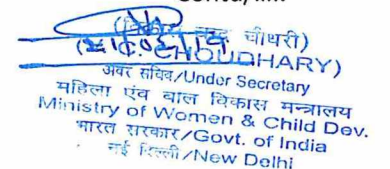 चौधरी)
CHOUDHARY)
अवर सचिव/Under Secretary
महिला एंव बाल विकास मन्त्रालय
Ministry of Women & Child Dev.
भारत सरकार/Govt. of India
नई दिल्ली/New Delhi